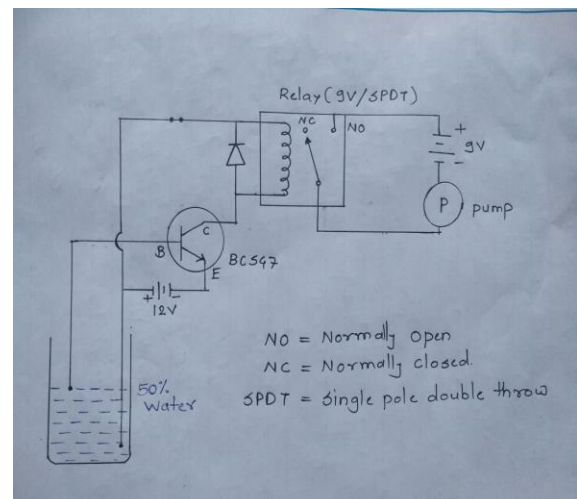 Relay (9V/SPDT)
NC
NO
+
9V
-
P
pump
C
B
BC547
E
+ -
12V
50%
Water
NO = Normally Open
NC = Normally Closed.
SPDT = Single pole double throw